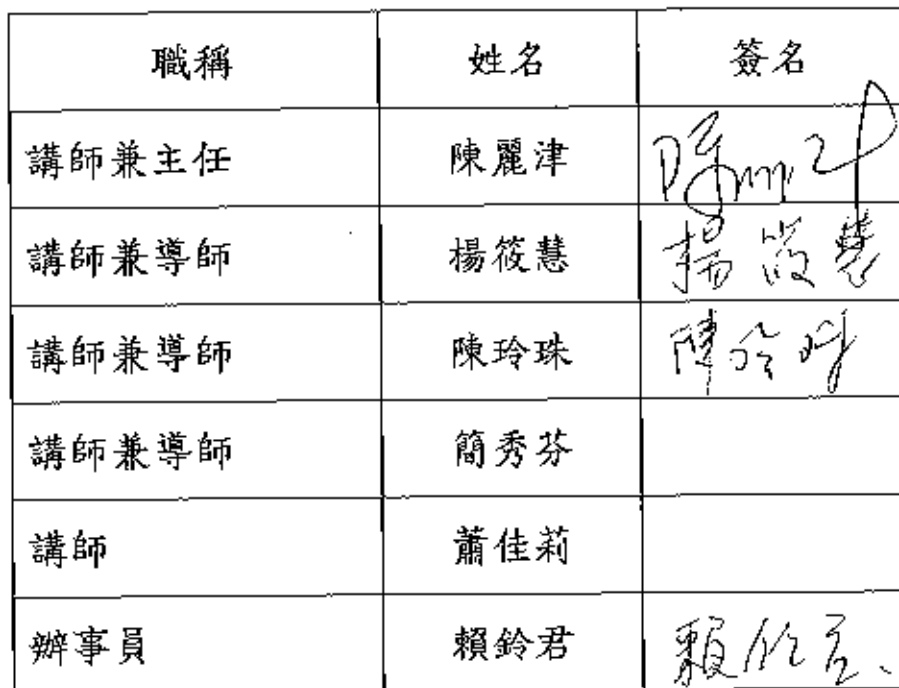 職稱 姓名 簽名
講師兼主任 陳麗津
講師兼導師 楊筱慧 楊筱慧
講師兼導師 陳玲珠 陳玲珠
講師兼導師 簡秀芬
講師 蕭佳莉
辦事員 賴鈴君